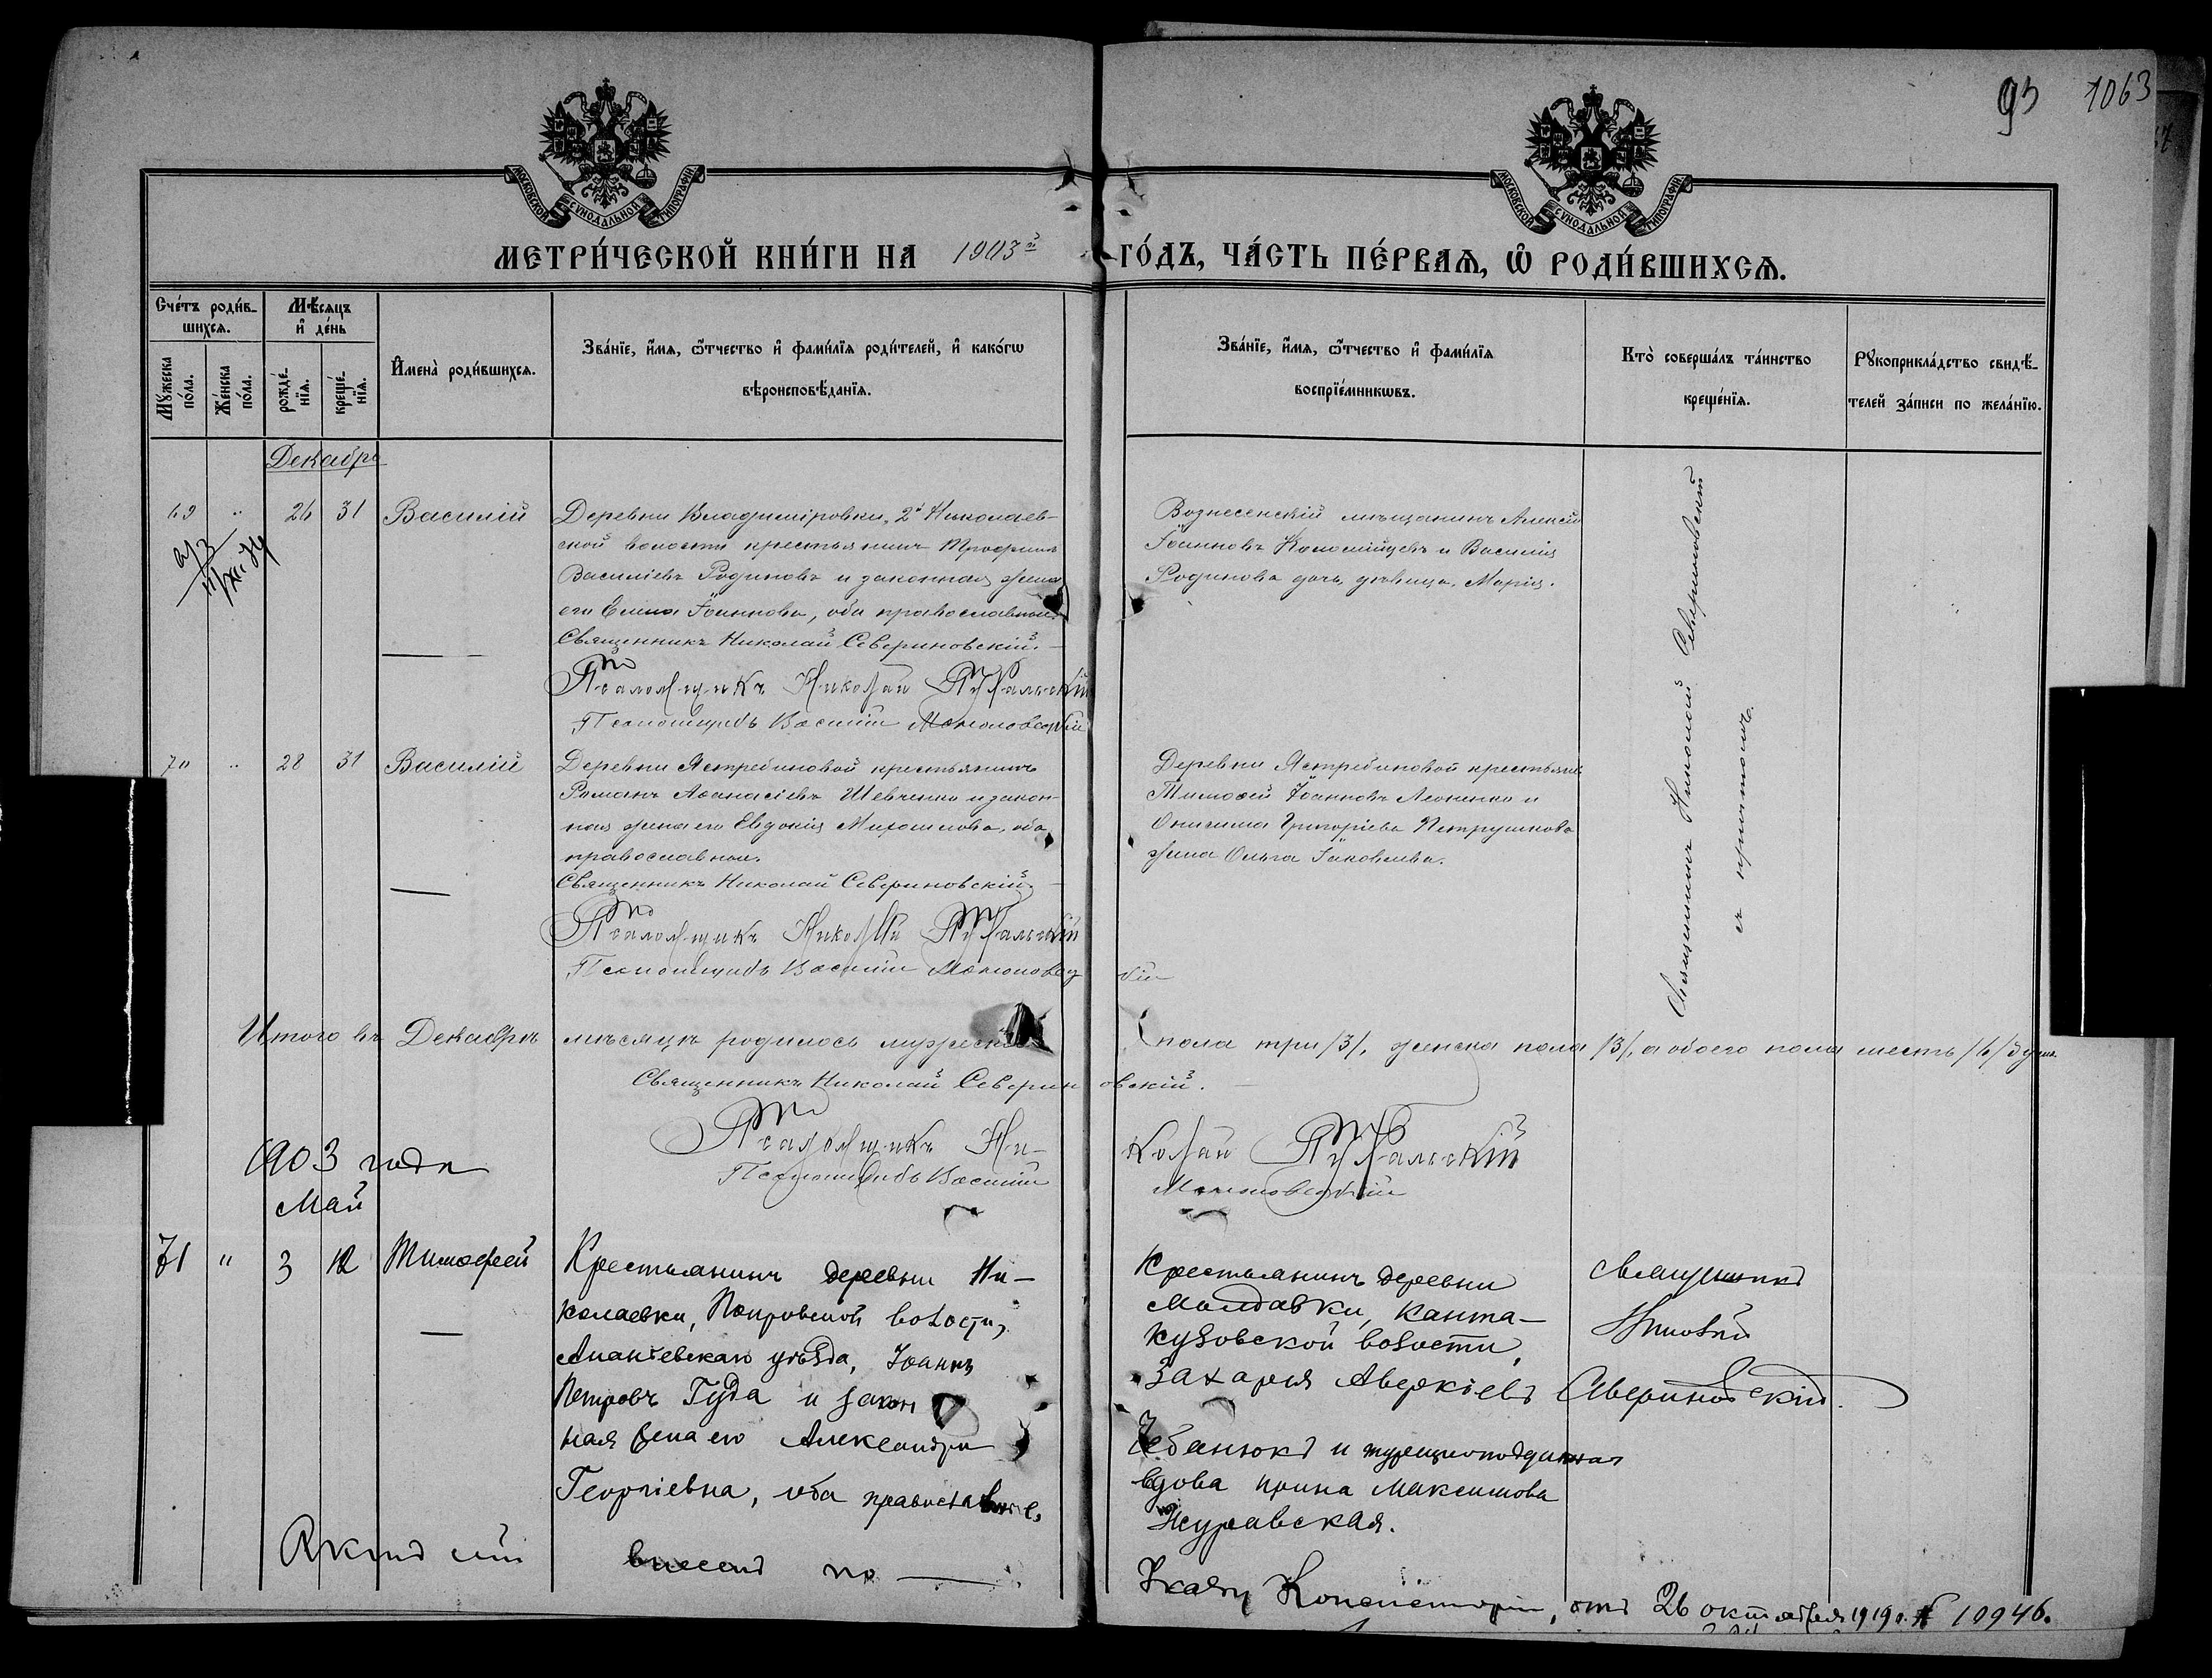 93 1063
МОСКОВСКОЙ СѴНОДАЛЬНОЙ ТИПОГРАФІИ
МОСКОВСКОЙ СѴНОДАЛЬНОЙ ТИПОГРАФІИ
МЕТРИ́ЧЕСКОЙ КНИ́ГИ НА 1903й ГО́ДЪ, ЧА́СТЬ ПЕ́РВАѦ, Ѡ҆ РОДИ́ВШИХСѦ.
Сче́тъ роди́в-
шихсѧ.
Мꙋ́жеска по́ла.
Же́нска по́ла.
Мѣ́сѧцъ
и҆ де́нь
рожде́-
нїѧ.
креще́-
нїѧ.
И҆мена̀ роди́вшихсѧ.
Зва́нїе, и҆́мѧ, ѻ҆́тчество и҆ фами́лїѧ роди́телей, и҆ како́гѡ
вѣроисповѣ́данїѧ.
Зва́нїе, и҆́мѧ, ѻ҆́тчество и҆ фами́лїѧ
воспрїе́мникѡвъ.
Кто̀ соверша́лъ та́инство
креще́нїѧ.
Рꙋкоприкла́дство свидѣ́-
телей за́писи по жела́нїю.
Декабрь
69 " 26 31 Василій
Деревни Владиміровки, 2й Николаев-
ской волости крестьянинъ Трофимъ
Василіевъ Родиновъ и законная жена
его Елена Іоаннова, оба православные.
Священникъ Николай Севериновскій.
Псаломщикъ Николай
Псаломщикъ Василій
Вознесенскій мѣщанинъ Алексій
Іоанновъ Коломійцевъ и Василія
Родинова дочь, дѣвица, Марія.
70 " 28 31 Василій
Деревни Ястребиновой крестьянинъ
Романъ Аѳанасіевъ Шевченко и закон-
ная жена его Евдокія Михаилова, оба
православные.
Священникъ Николай Севериновскій
Псаломщикъ Николай
Псаломщикъ Василій
Деревни Ястребиновой крестьяне
Тимоѳей Іоанновъ Леоненко и
Онисима Григоріева Петрушкова
жена Ольга Іаковлева.
Священникъ Николай Севериновскій
съ причтомъ.
Итого въ Декабрѣ мѣсяцѣ родилось мужеска пола три /3/, женска пола /3/, а обоего пола шесть /6/ душъ.
Священникъ Николай Севериновскій.
Псаломщикъ Николай
Псаломщикъ Василій
1903 года
Май
71 " 3 12 Тимофей
Крестьянинъ деревни Ни-
колаевки, Покровской волости,
Ананьевскаго уѣзда, Іоаннъ
Петровъ Гуда и закон
ная жена его Александра
Георгіевна, оба православные.
Крестьянинъ деревни
Молдавки, Канта-
кузовской волости,
Захарія Аверкіевъ
Чебанюкъ и турецкоподданная
вдова Ирина Максимова
Журавская.
Священникъ
Николай
Севериновскій.
Актъ сей внесенъ по
Указу Консисторіи, отъ 26 октября 1919 г. № 10946.